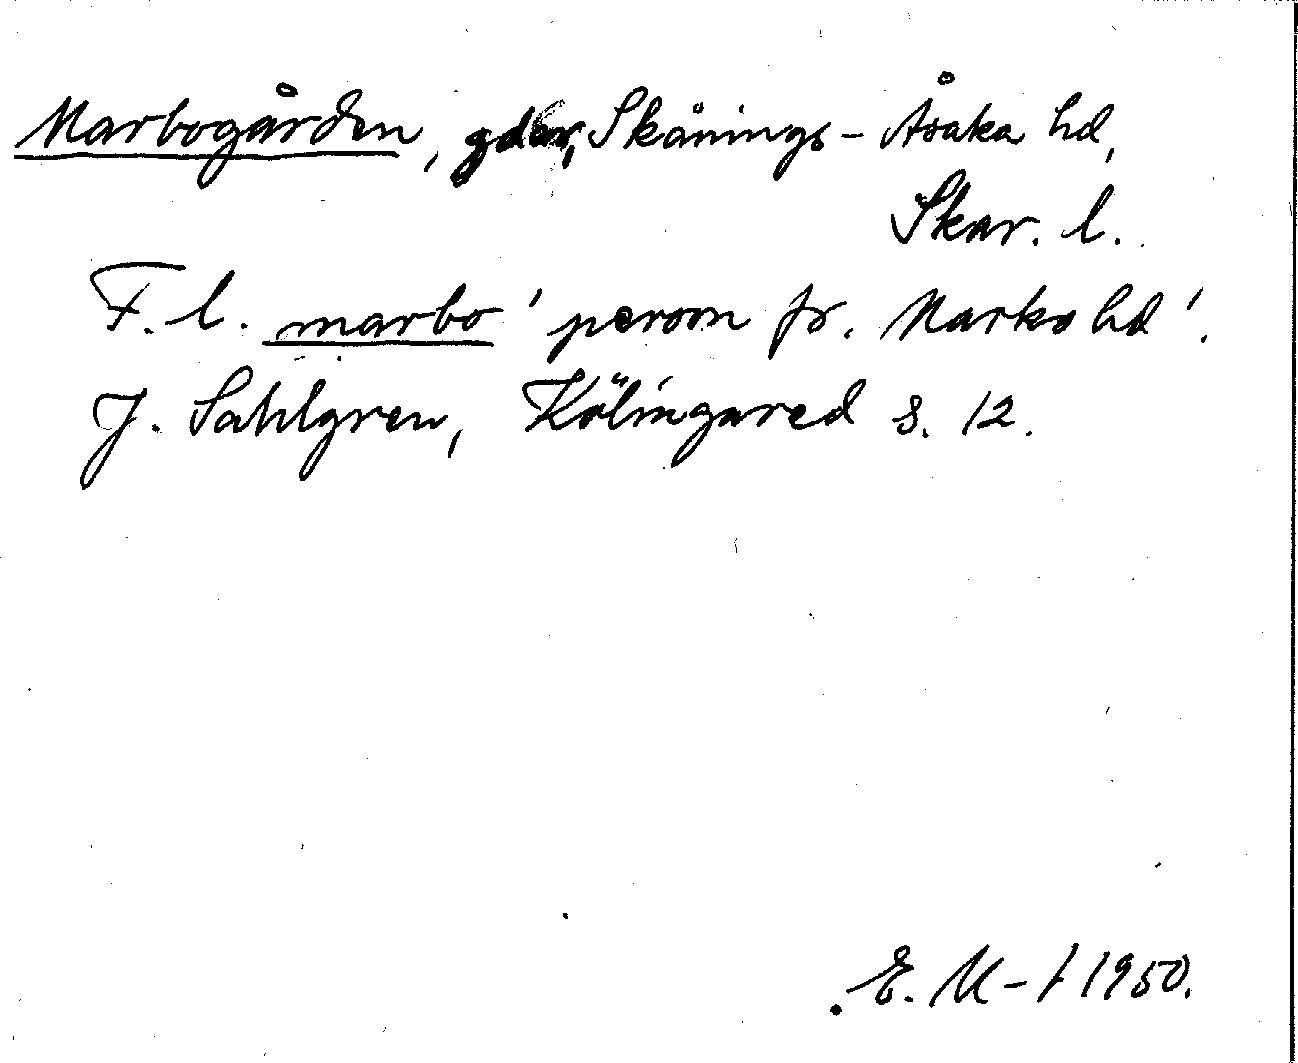 Marbogården, gdar, Skånings-Åsaka hd,
Skar. l.
F. l. marbo 'person fr. Marks hd'.
J. Sahlgren, Kölingared s. 12.
E. M-t 1950.